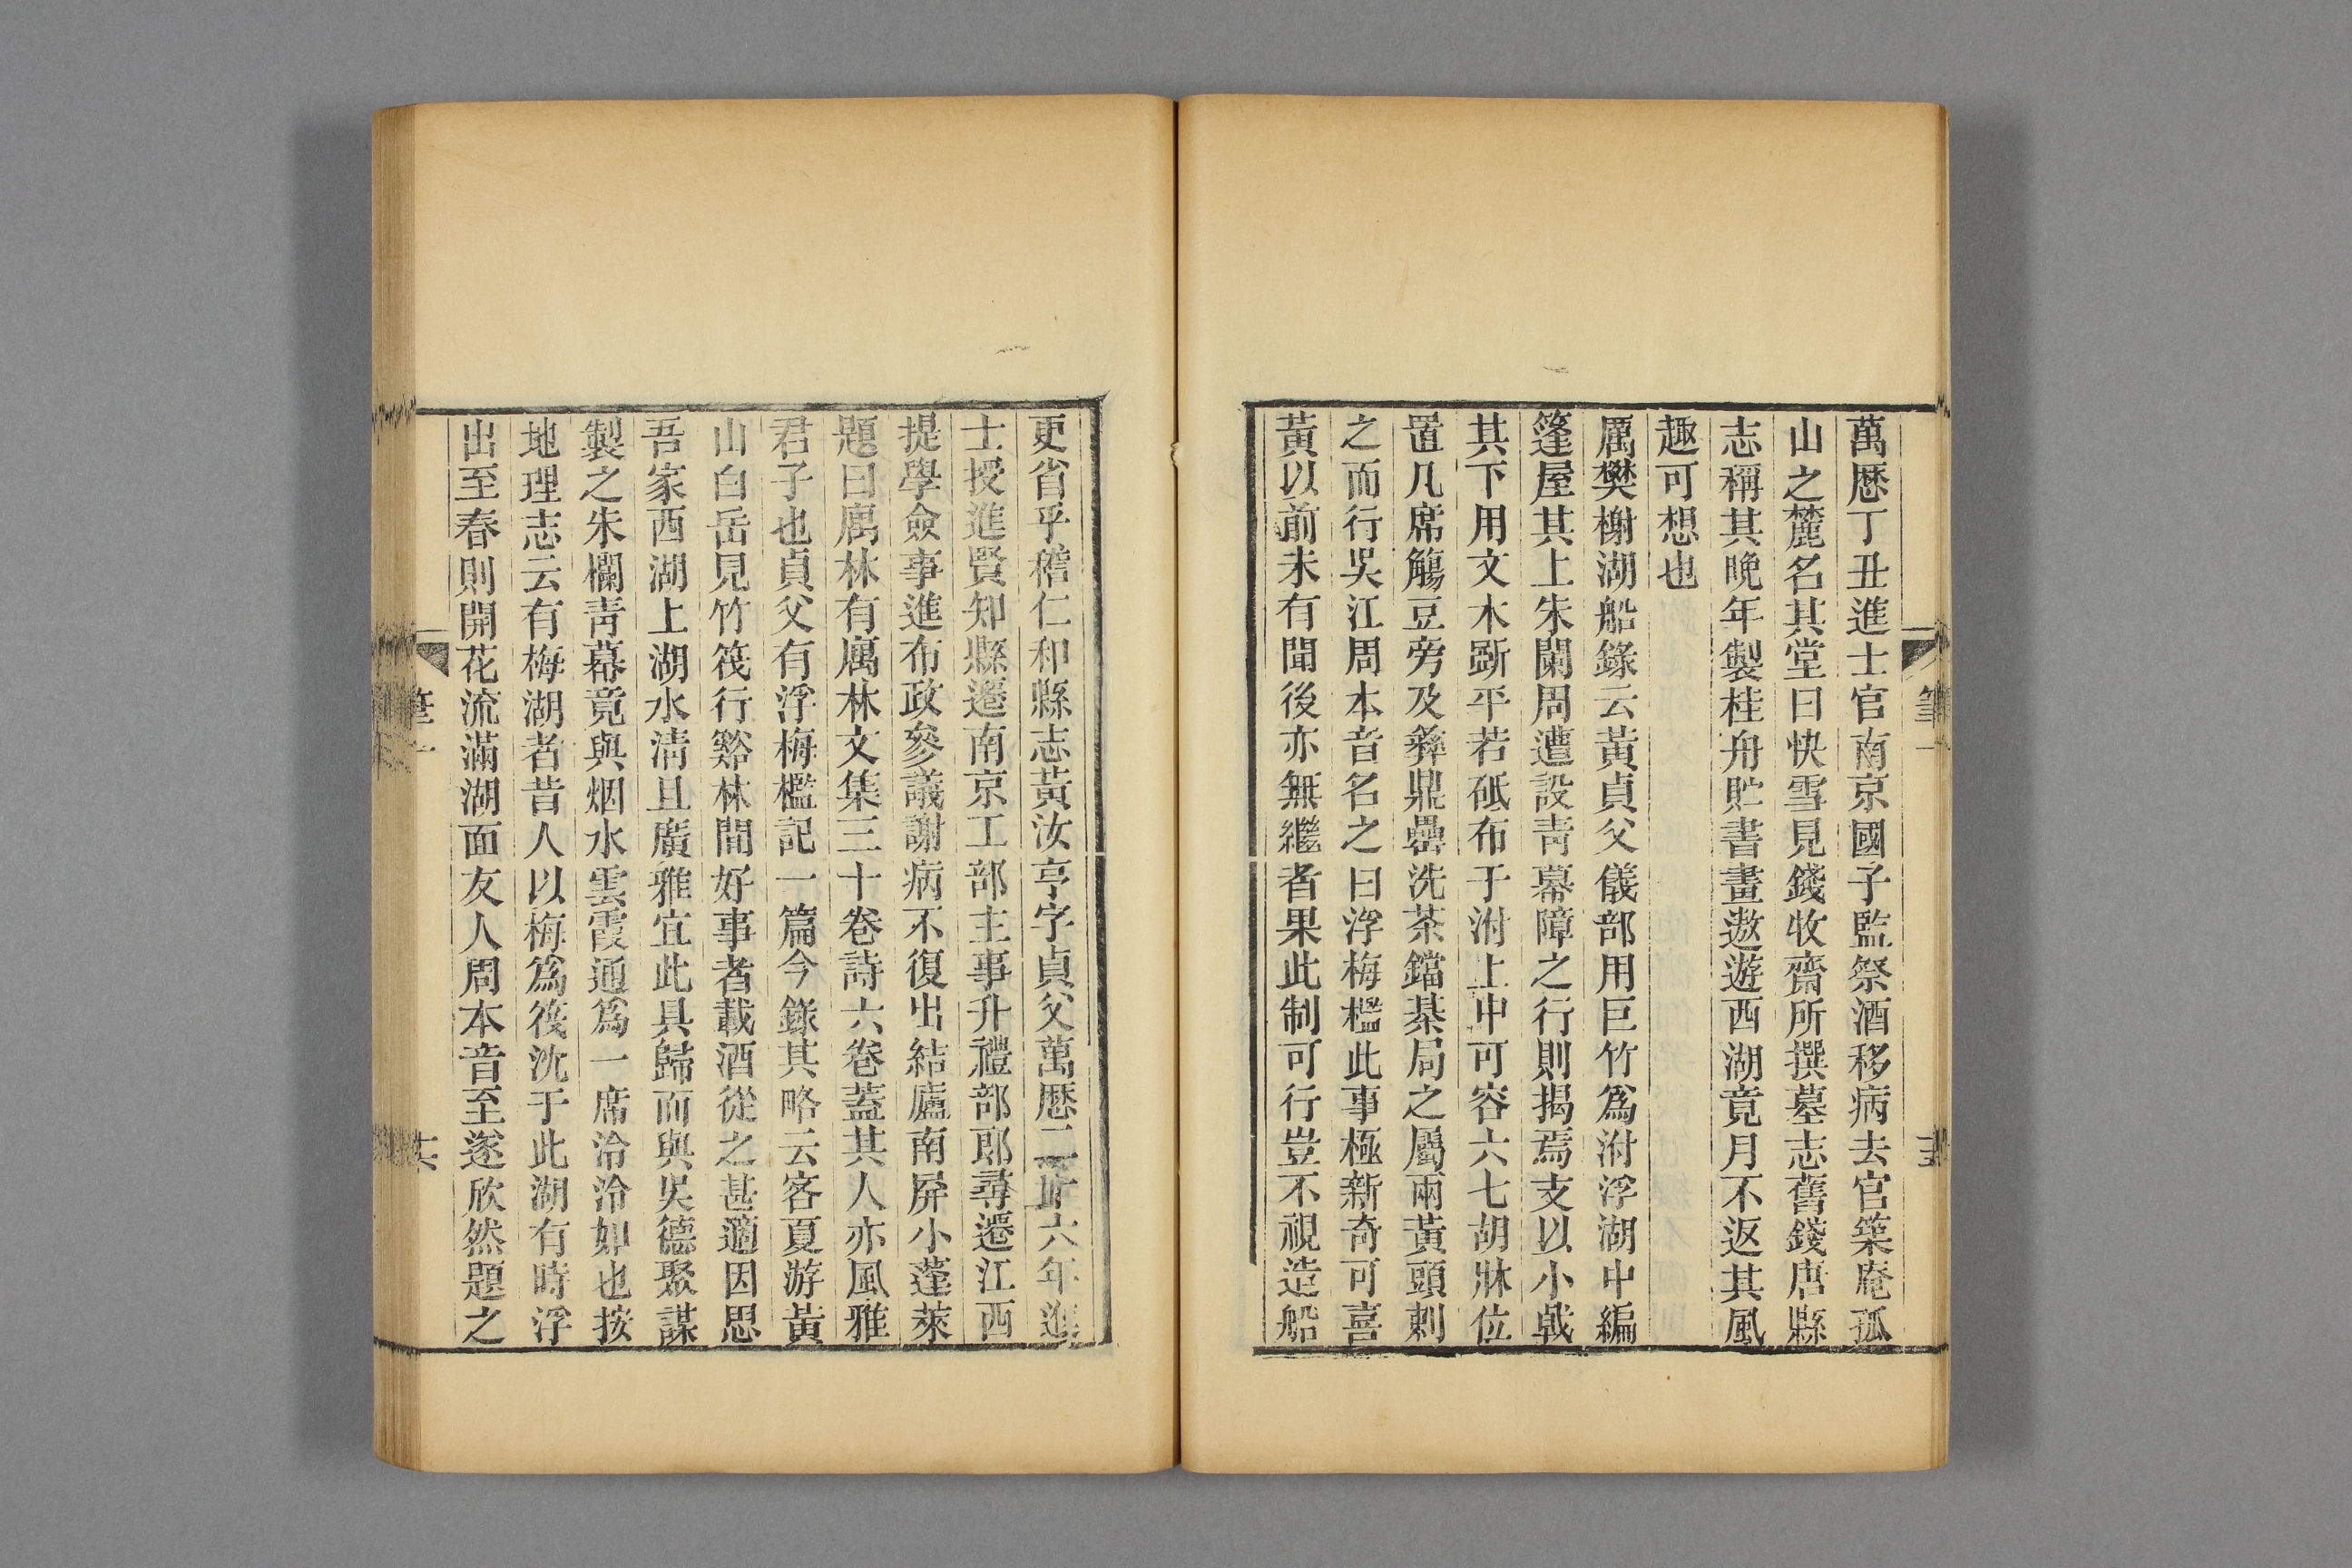 萬厯丁丑進士官南京國子監祭酒移病去官築庵孤
山之麓名其堂曰快雪見錢牧齋所撰墓志舊錢唐縣
志稱其晚年製桂舟貯書畫遨遊西湖竟月不返其風
趣可想也
厲樊榭湖船錄云黃貞父儀部用巨竹爲泭浮湖中編
篷屋其上朱闌周遭設靑幕障之行則揭焉支以小戟
其下用文木斲平若砥布于泭上中可容六七胡牀位
置几席觴豆旁及彝鼎罍洗茶鐺棊局之屬兩黃頭刺
之而行吳江周本音名之曰浮梅檻此事極新奇可喜
黃以前未有聞後亦無繼者果此制可行豈不視造船
更省乎稽仁和縣志黃汝亨字貞父萬厯二十六年進
士授進賢知縣遷南京工部主事升禮部郎尋遷江西
提學僉事進布政參議謝病不復出結廬南屏小蓬萊
題曰寓林有寓林文集三十卷詩六卷蓋其人亦風雅
君子也貞父有浮梅檻記一篇今錄其略云客夏游黃
山白岳見竹筏行谿林間好事者載酒從之甚適因思
吾家西湖上湖水淸且廣雅宜此具歸而與吳德聚謀
製之朱欄靑幕竟與烟水雲霞通爲一席泠泠如也按
地理志云有梅湖者昔人以梅爲筏沈于此湖有時浮
出至春則開花流滿湖面友人周本音至遂欣然題之